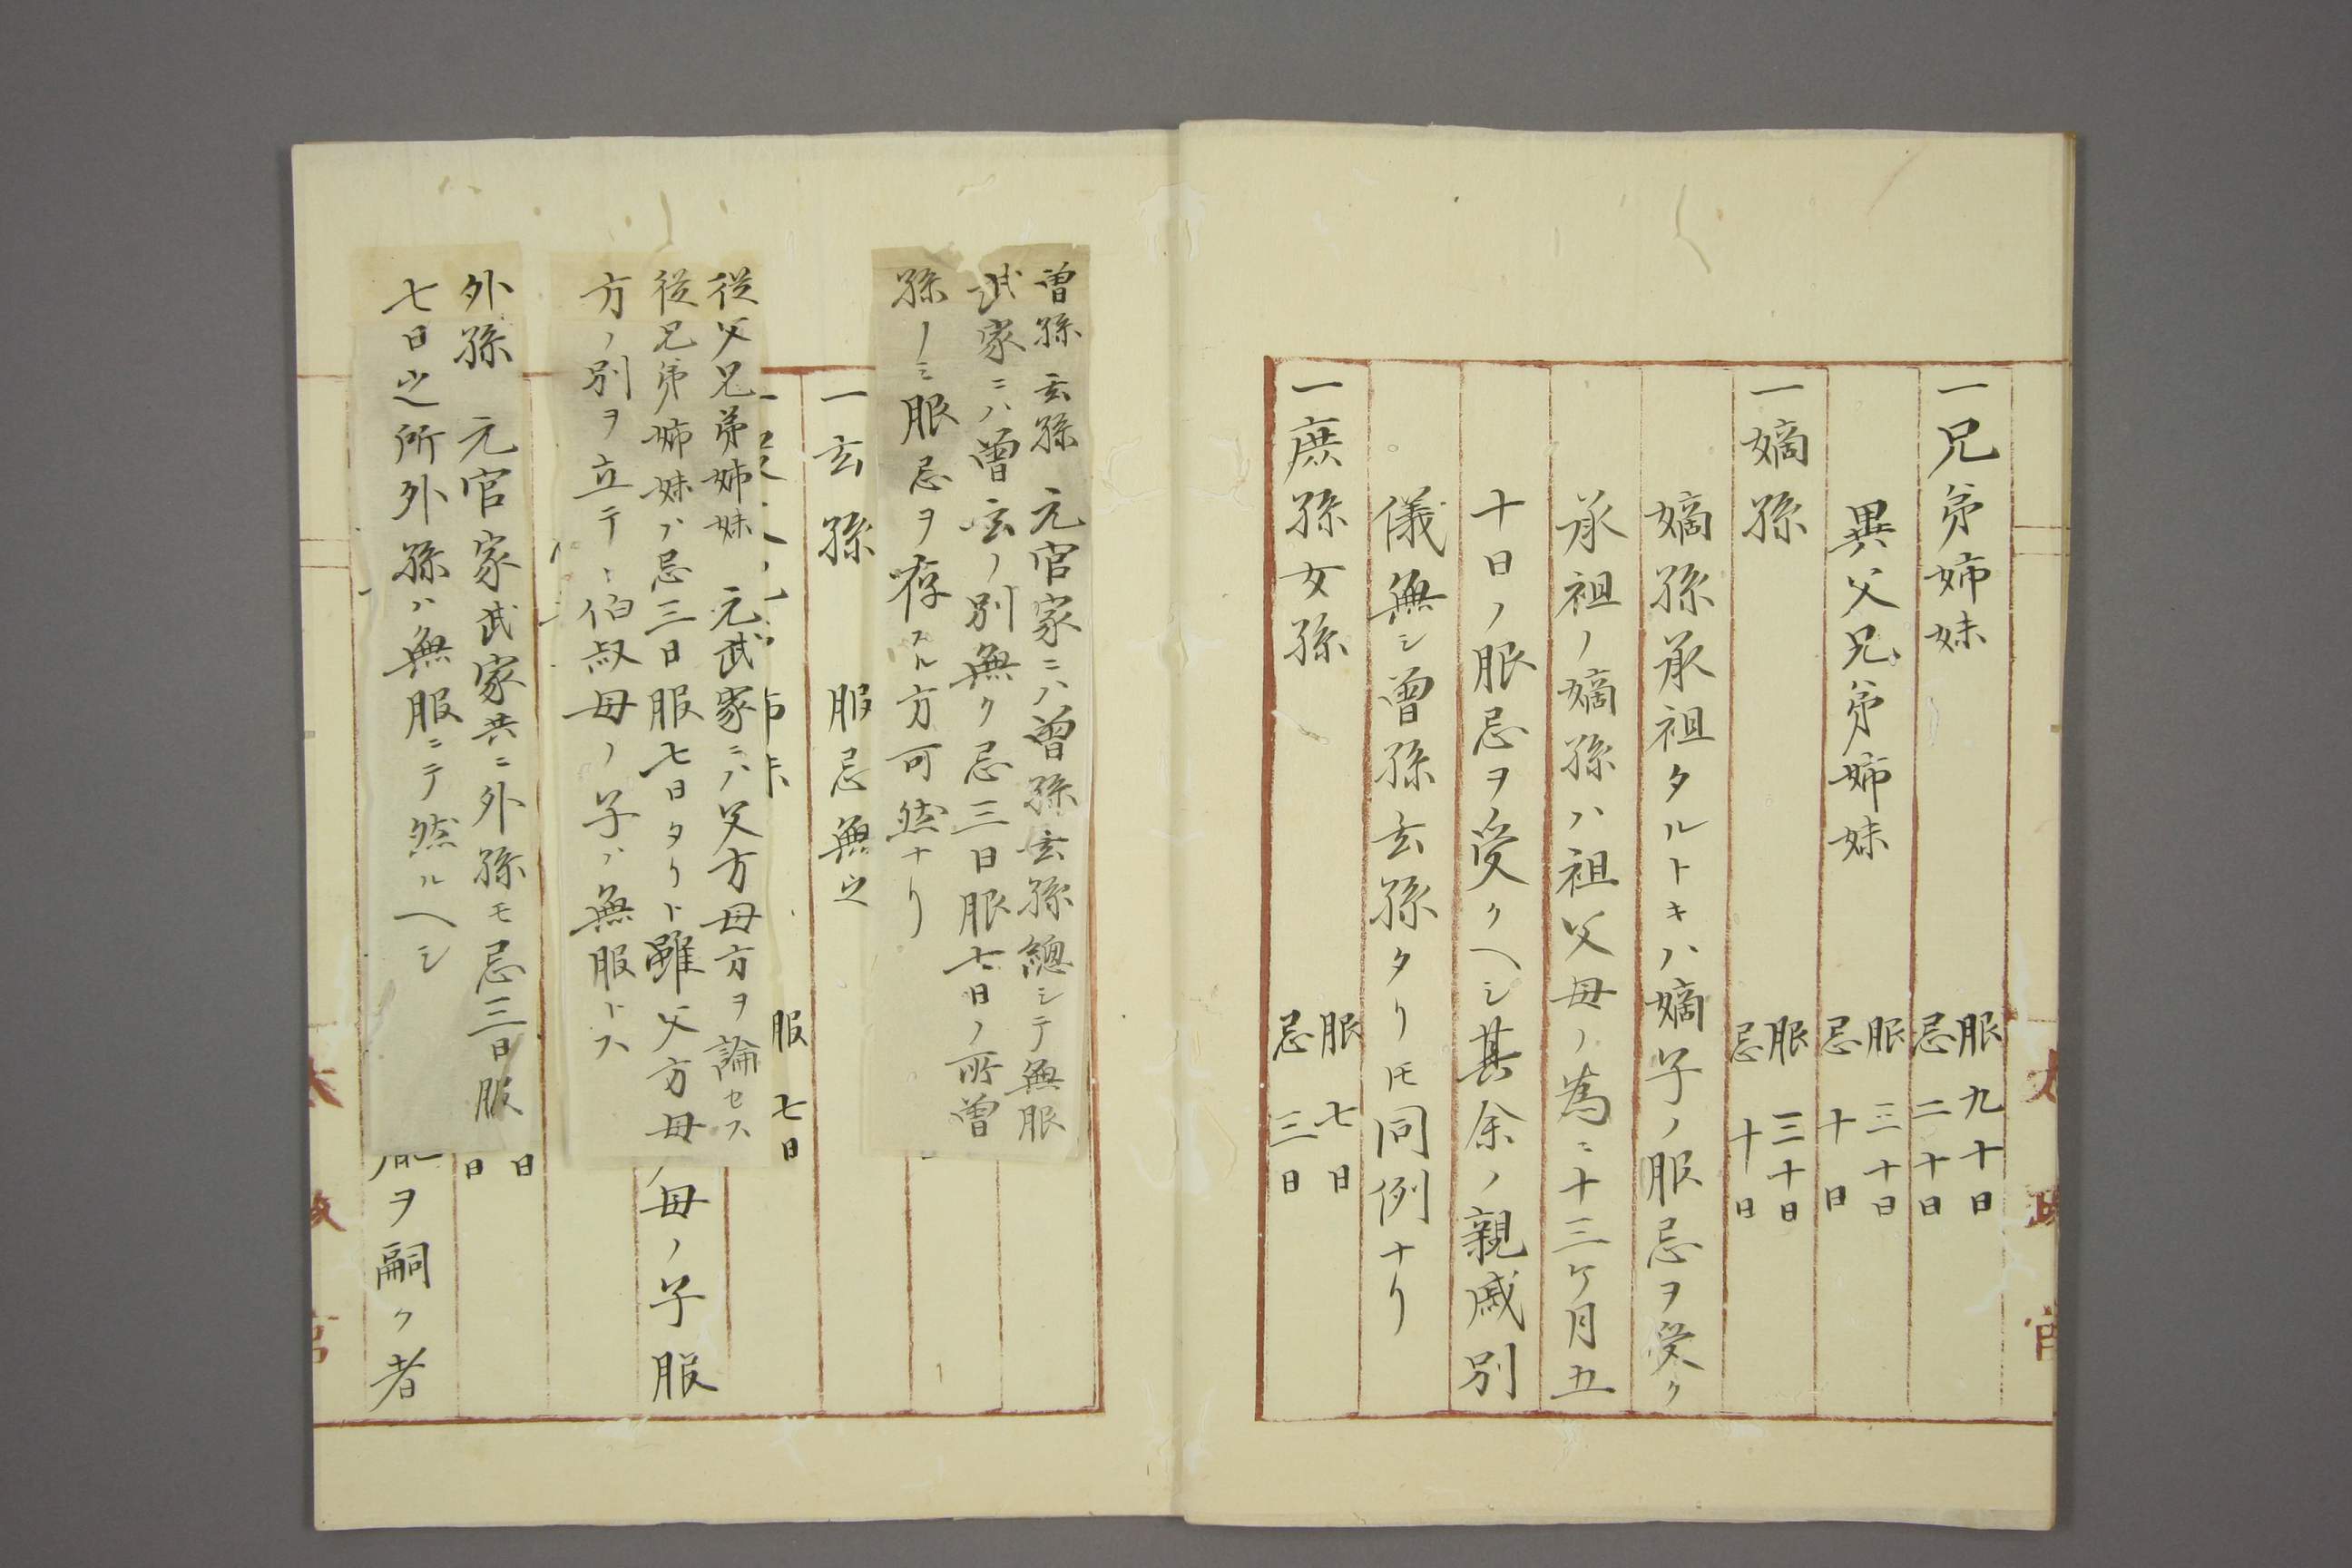 一兄弟姉妹 服九十日 忌二十日
異父兄弟姉妹 服三十日 忌十日
一嫡孫 服三十日 忌十日
嫡孫承祖タルトキハ嫡子ノ服忌ヲ受ク
承祖ノ嫡孫ハ祖父母ノ為ニ十三ケ月五
十日ノ服忌ヲ受クヘシ其余ノ親戚別
儀無シ曾孫玄孫タリトモ同例ナリ
一庶孫女孫 服七日 忌三日
太政官
曾孫玄孫 元官家ニハ曾孫玄孫總シテ無服
武家ニハ曾玄ノ別無ク忌三日服七日ノ所曾
孫ノミ服忌ヲ存スル方可然ナリ
一玄孫 服忌無之
服七日
従父兄弟姉妹 元武家ニハ父方母方ヲ論セス
従兄弟姉妹ハ忌三日服七日タリト雖父方母
方ノ別ヲ立テヽ伯叔母ノ子ハ無服トス
母ノ子服
外孫 元官家武家共ニ外孫モ忌三日服
七日之所外孫ハ無服ニテ然ルヘシ
日
日
ヲ嗣ク者